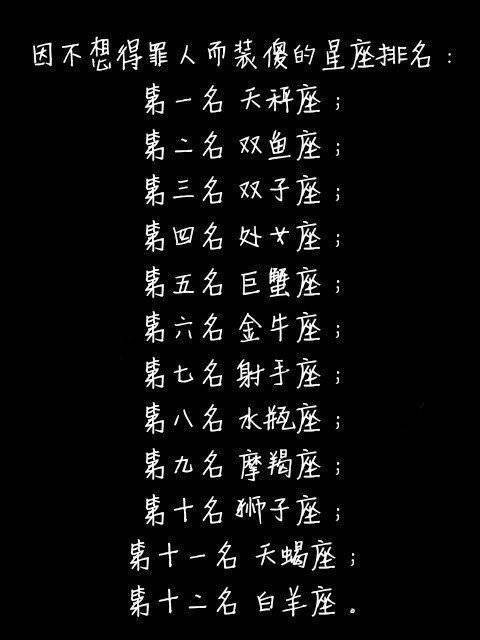 因不想得罪人而装傻的星座排名：
第一名 天秤座；
第二名 双鱼座；
第三名 双子座；
第四名 处女座；
第五名 巨蟹座；
第六名 金牛座；
第七名 射手座；
第八名 水瓶座；
第九名 摩羯座；
第十名 狮子座；
第十一名 天蝎座；
第十二名 白羊座。